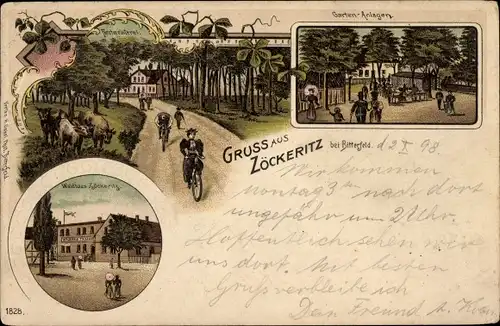 Försterei.
Garten-Anlagen
GRUSS AUS
ZÖCKERITZ
bei Bitterfeld.
Waldhaus Zöckeritz
1828.
Wir kommen
Montag 3ten nach dort
ungefähr um 2 Uhr.
Hoffentlich sehen wir
uns dort. Mit besten
Gruss verbleibe ich
Dein Freund